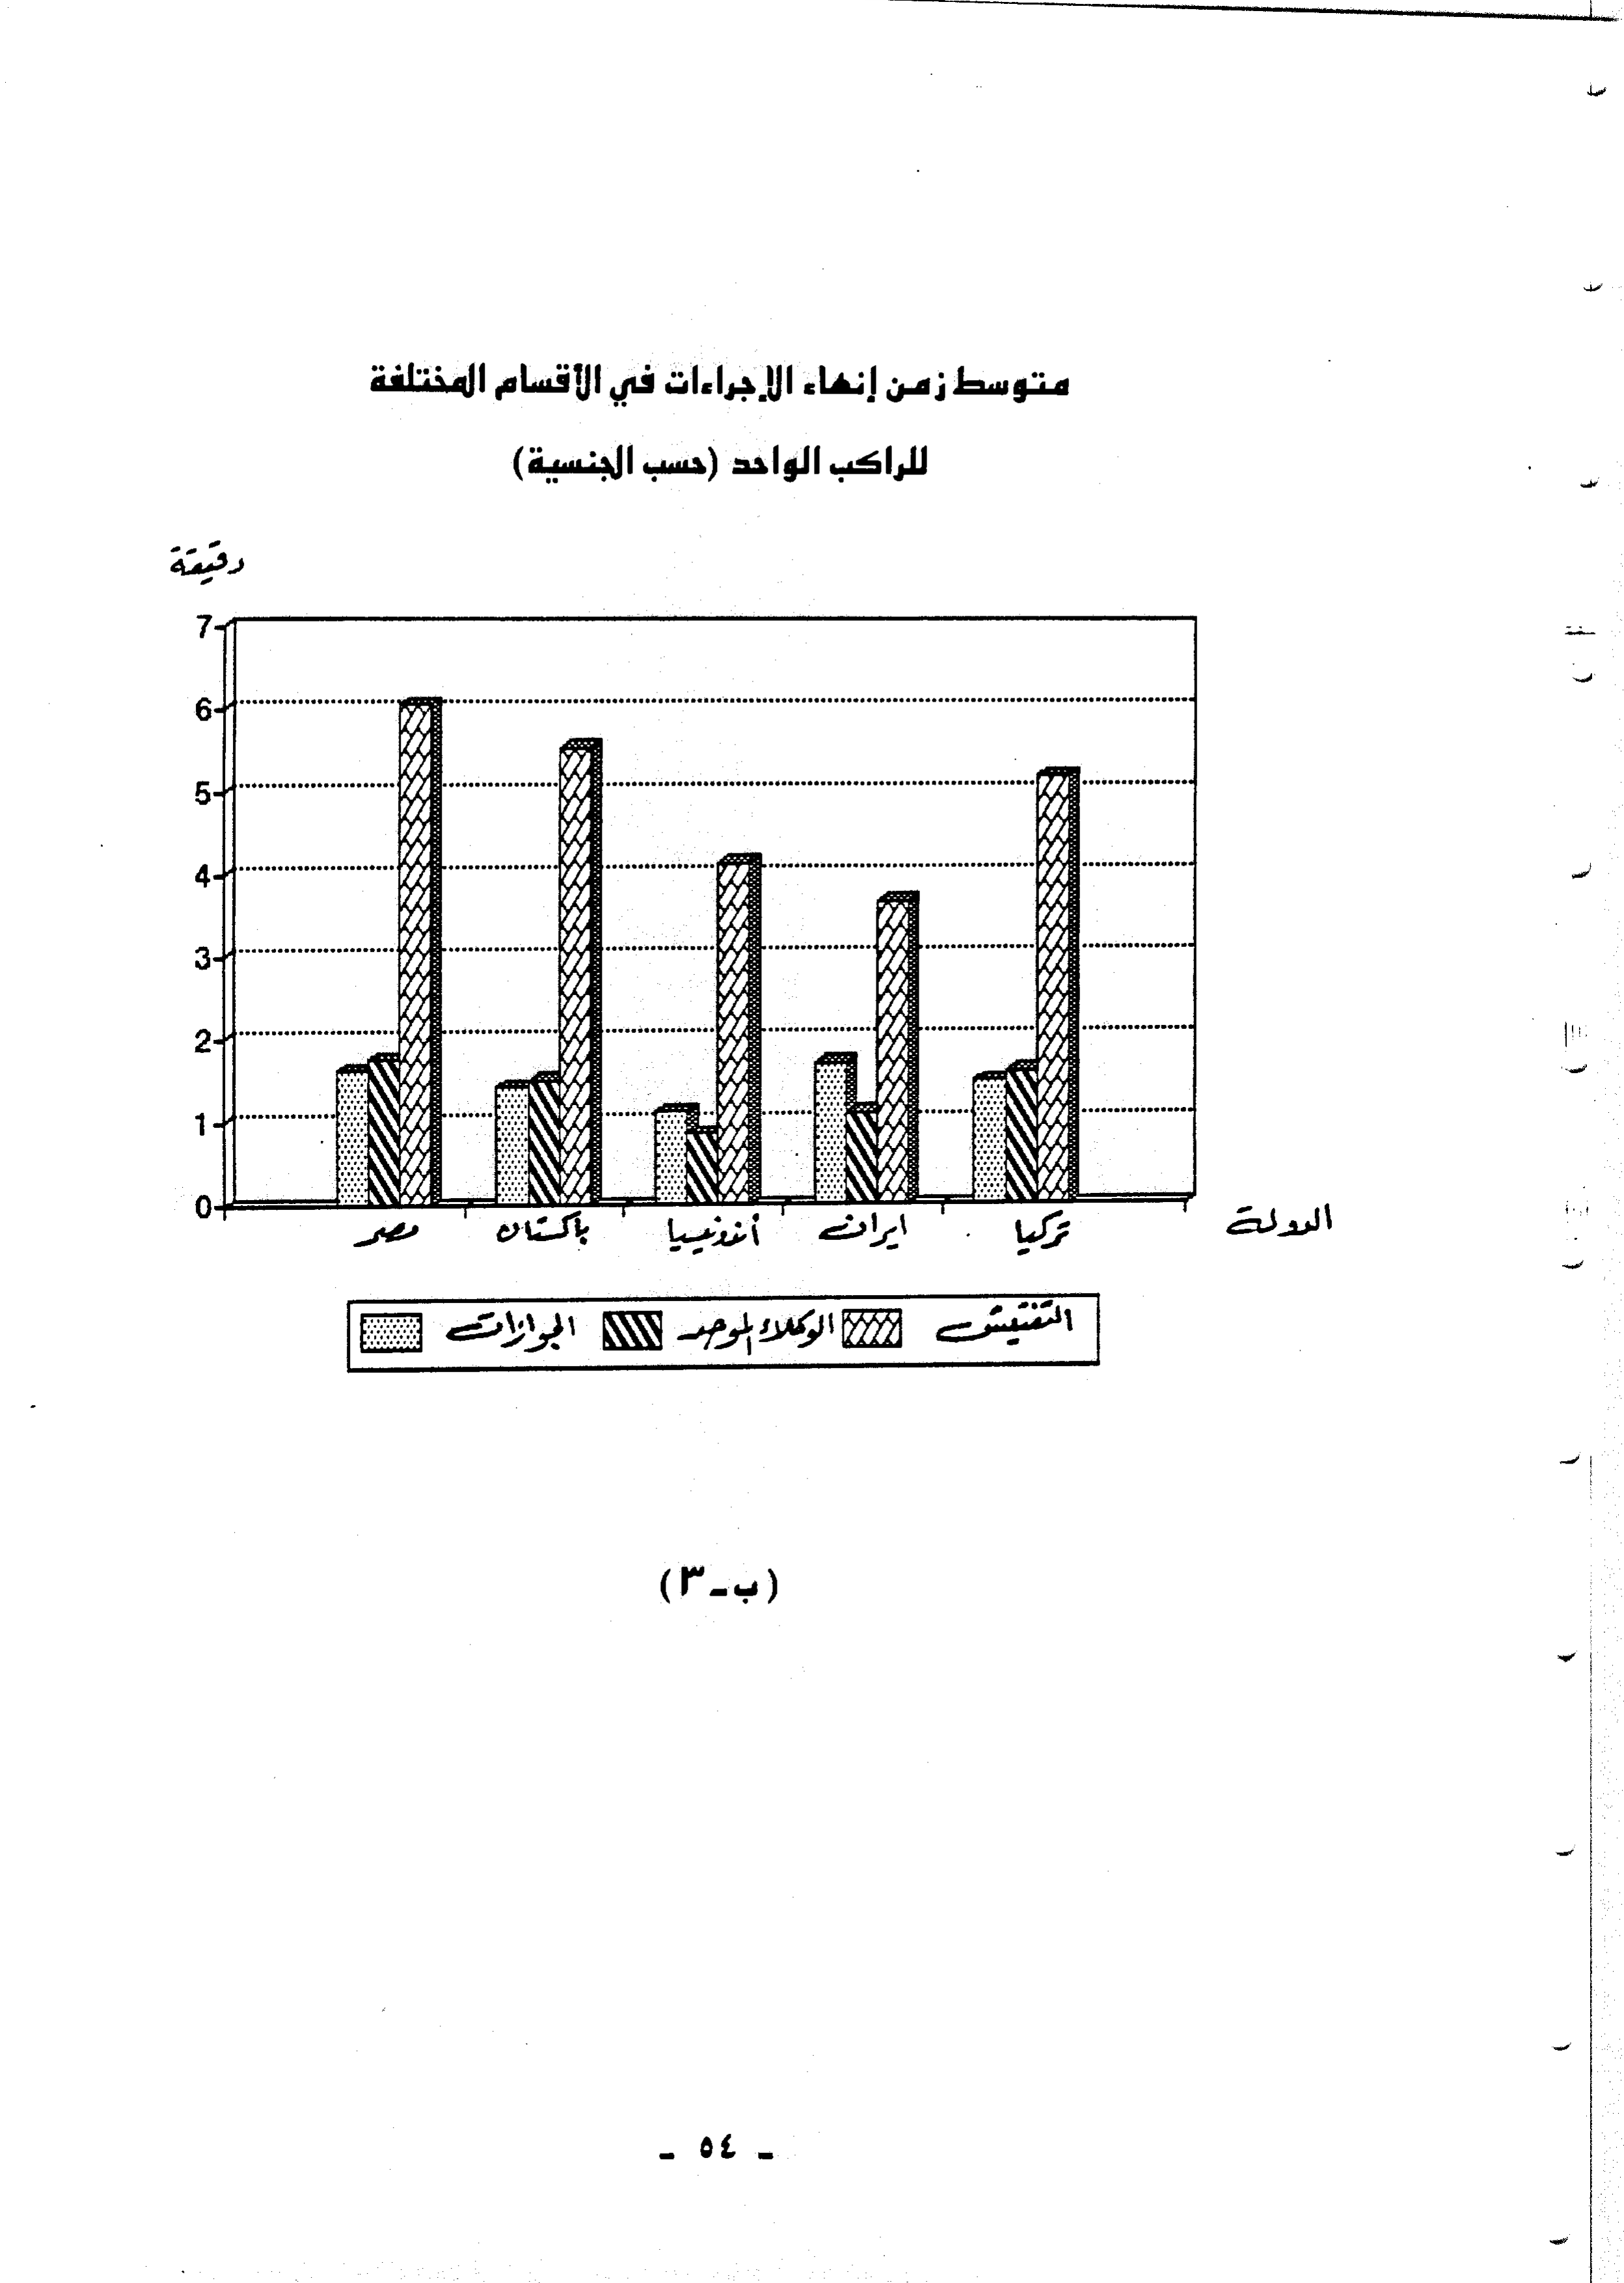 متوسط زمن إنهاء الإجراءات في الأقسام المختلفة
للراكب الواحد (حسب الجنسية)
دقيقة
7
6
5
4
3
2
1
0
مصر باكستان أندونيسيا ايران تركيا الدولة
الجوازات الوكلاء الموحد التفتيش
(ب-٣)
- ٥٤ -